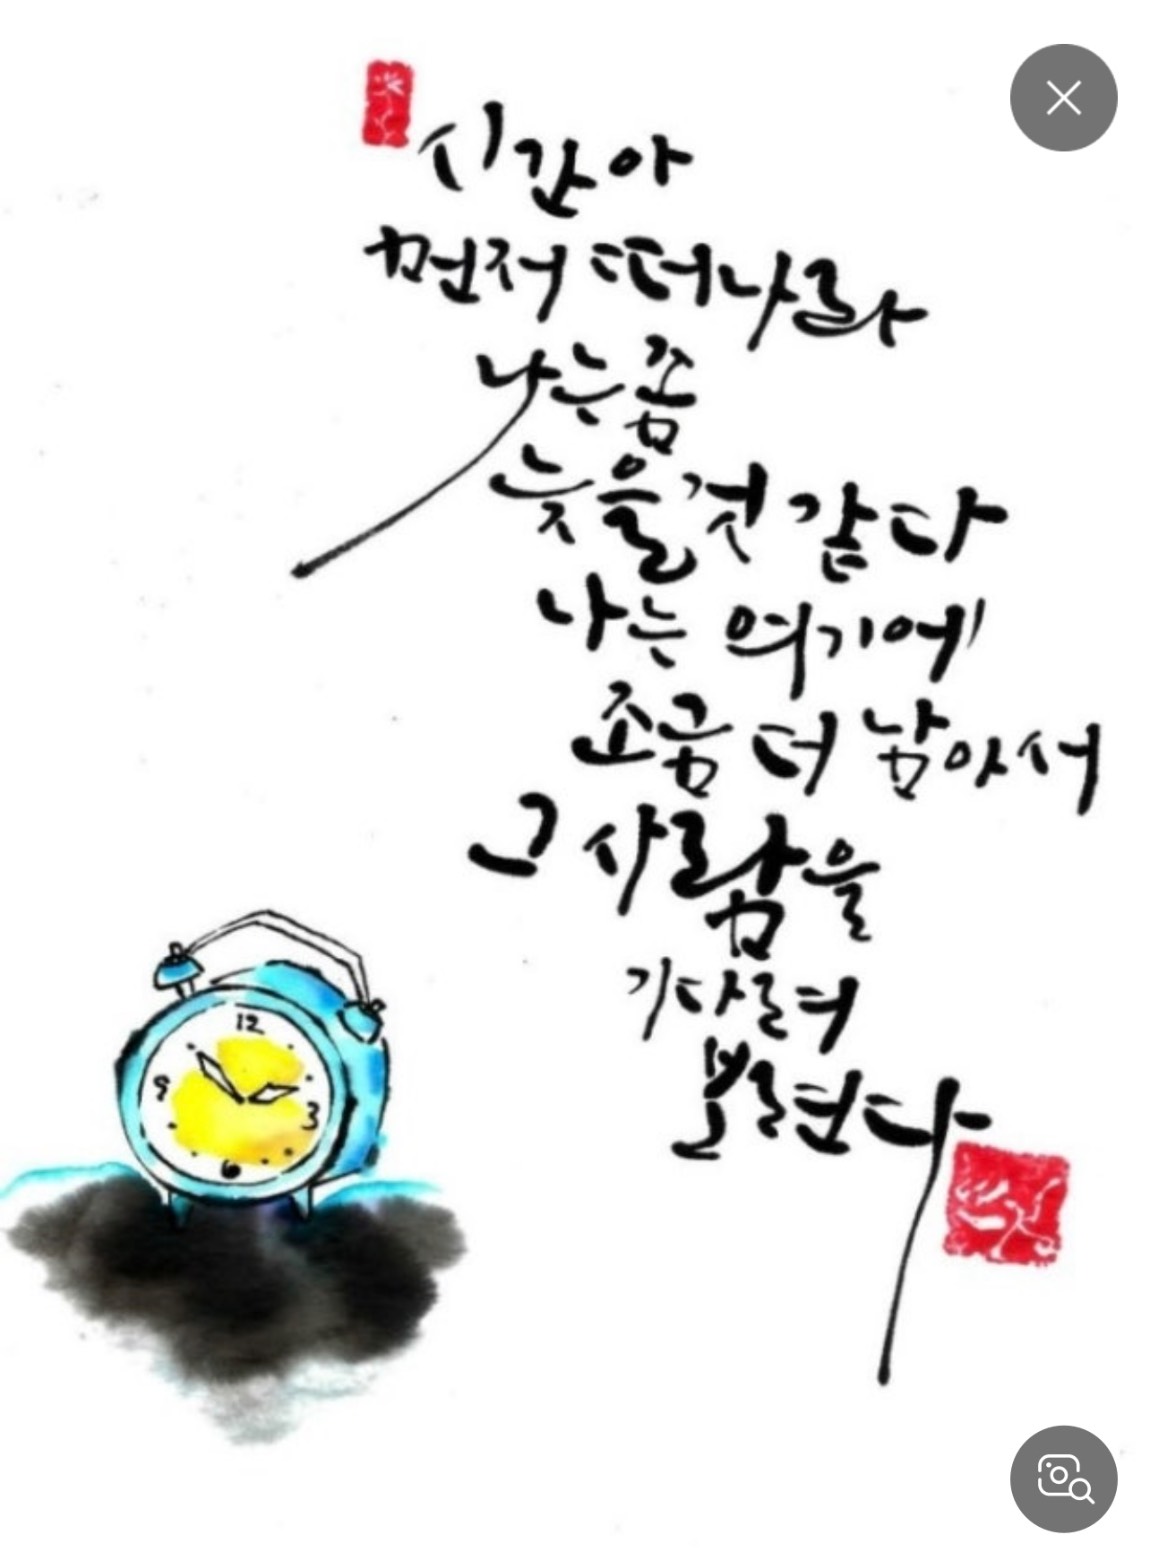 시간아
먼저 떠나라
나는 좀
늦을 것 같다
나는 여기에
조금 더 남아서
그 사람을
기다려
보련다
12
9
3
6